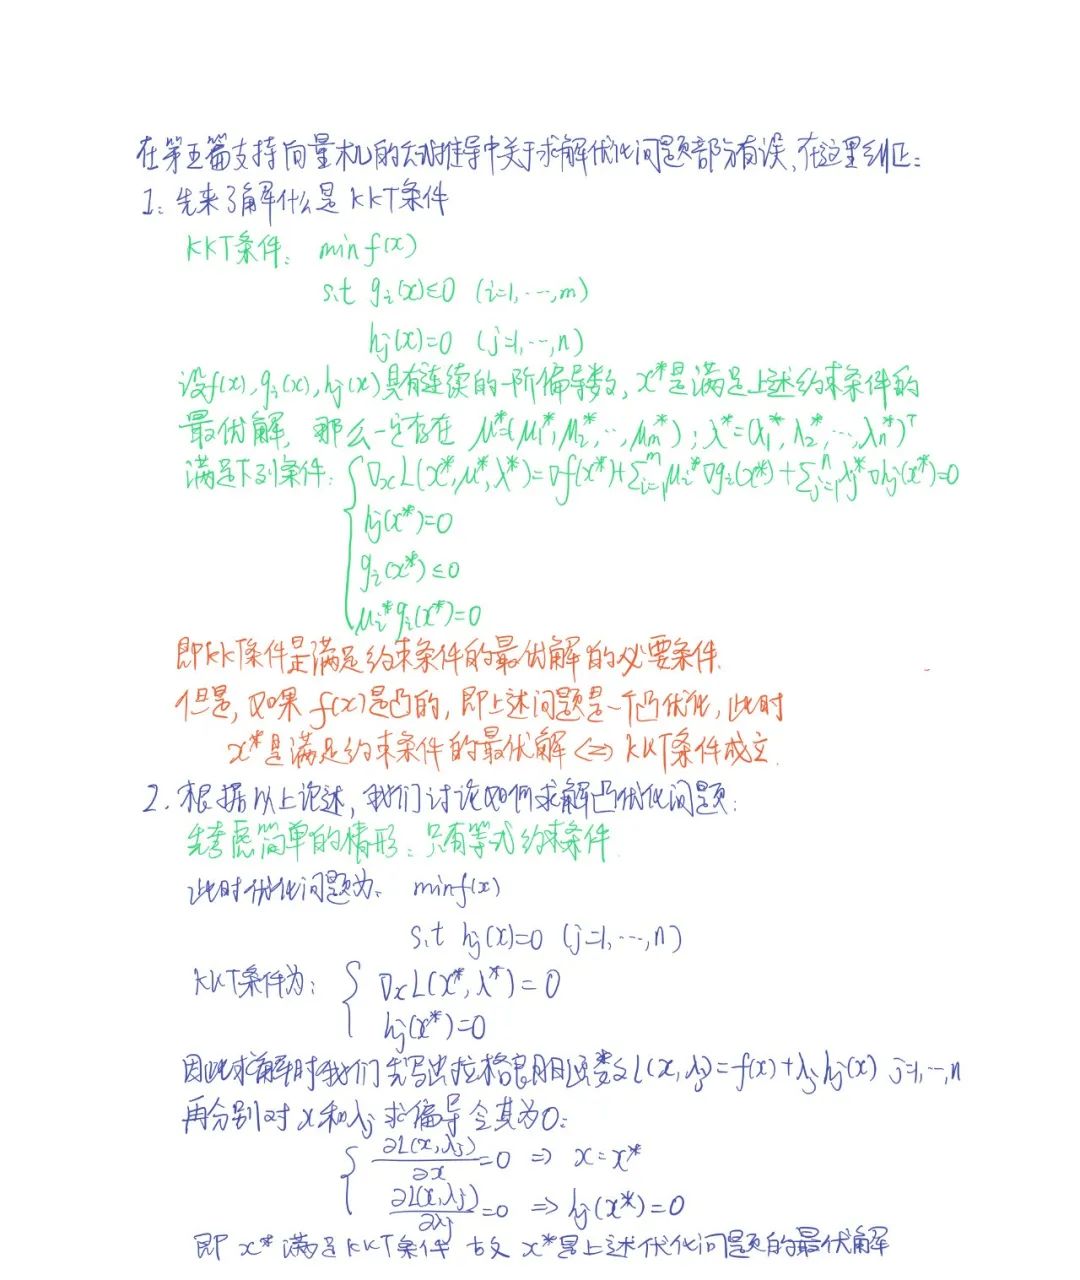 在第五篇支持向量机的公式推导中关于求解优化问题部分有误,在这里纠正:
1. 先来了解什么是KKT条件
KKT条件: min f(x)
s.t gᵢ(x)≤0 (i=1,…,m)
hⱼ(x)=0 (j=1,…,n)
设f(x),gᵢ(x),hⱼ(x)具有连续的一阶偏导数,x*是满足上述约束条件的
最优解,那么一定存在 μ*=(μ₁*,μ₂*,…,μₘ*);λ*=(λ₁*,λ₂*,…,λₙ*)ᵀ
满足下列条件: { ∇ₓL(x*,μ*,λ*)=∇f(x*)+∑ᵢ₌₁ᵐμᵢ*∇gᵢ(x*)+∑ⱼ₌₁ⁿλⱼ*∇hⱼ(x*)=0
hⱼ(x*)=0
gᵢ(x*)≤0
μᵢ*gᵢ(x*)=0
即KKT条件是满足约束条件的最优解的必要条件.
但是,如果f(x)是凸的,即上述问题是一个凸优化,此时
x*是满足约束条件的最优解 <=> KKT条件成立.
2. 根据以上论述,我们讨论如何求解凸优化问题:
先考虑简单的情形:只有等式约束条件.
此时优化问题为: minf(x)
s.t hⱼ(x)=0 (j=1,…,n)
KKT条件为: { ∇ₓL(x*,λ*)=0
hⱼ(x*)=0
因此求解时我们先写出拉格朗日函数L(x,λⱼ)=f(x)+λⱼhⱼ(x) j=1,…,n
再分别对x和λⱼ求偏导令其为0:
{ ∂L(x,λⱼ)/∂x=0 => x=x*
∂L(x,λⱼ)/∂λⱼ=0 => hⱼ(x*)=0
即x*满足KKT条件 故x*是上述优化问题的最优解